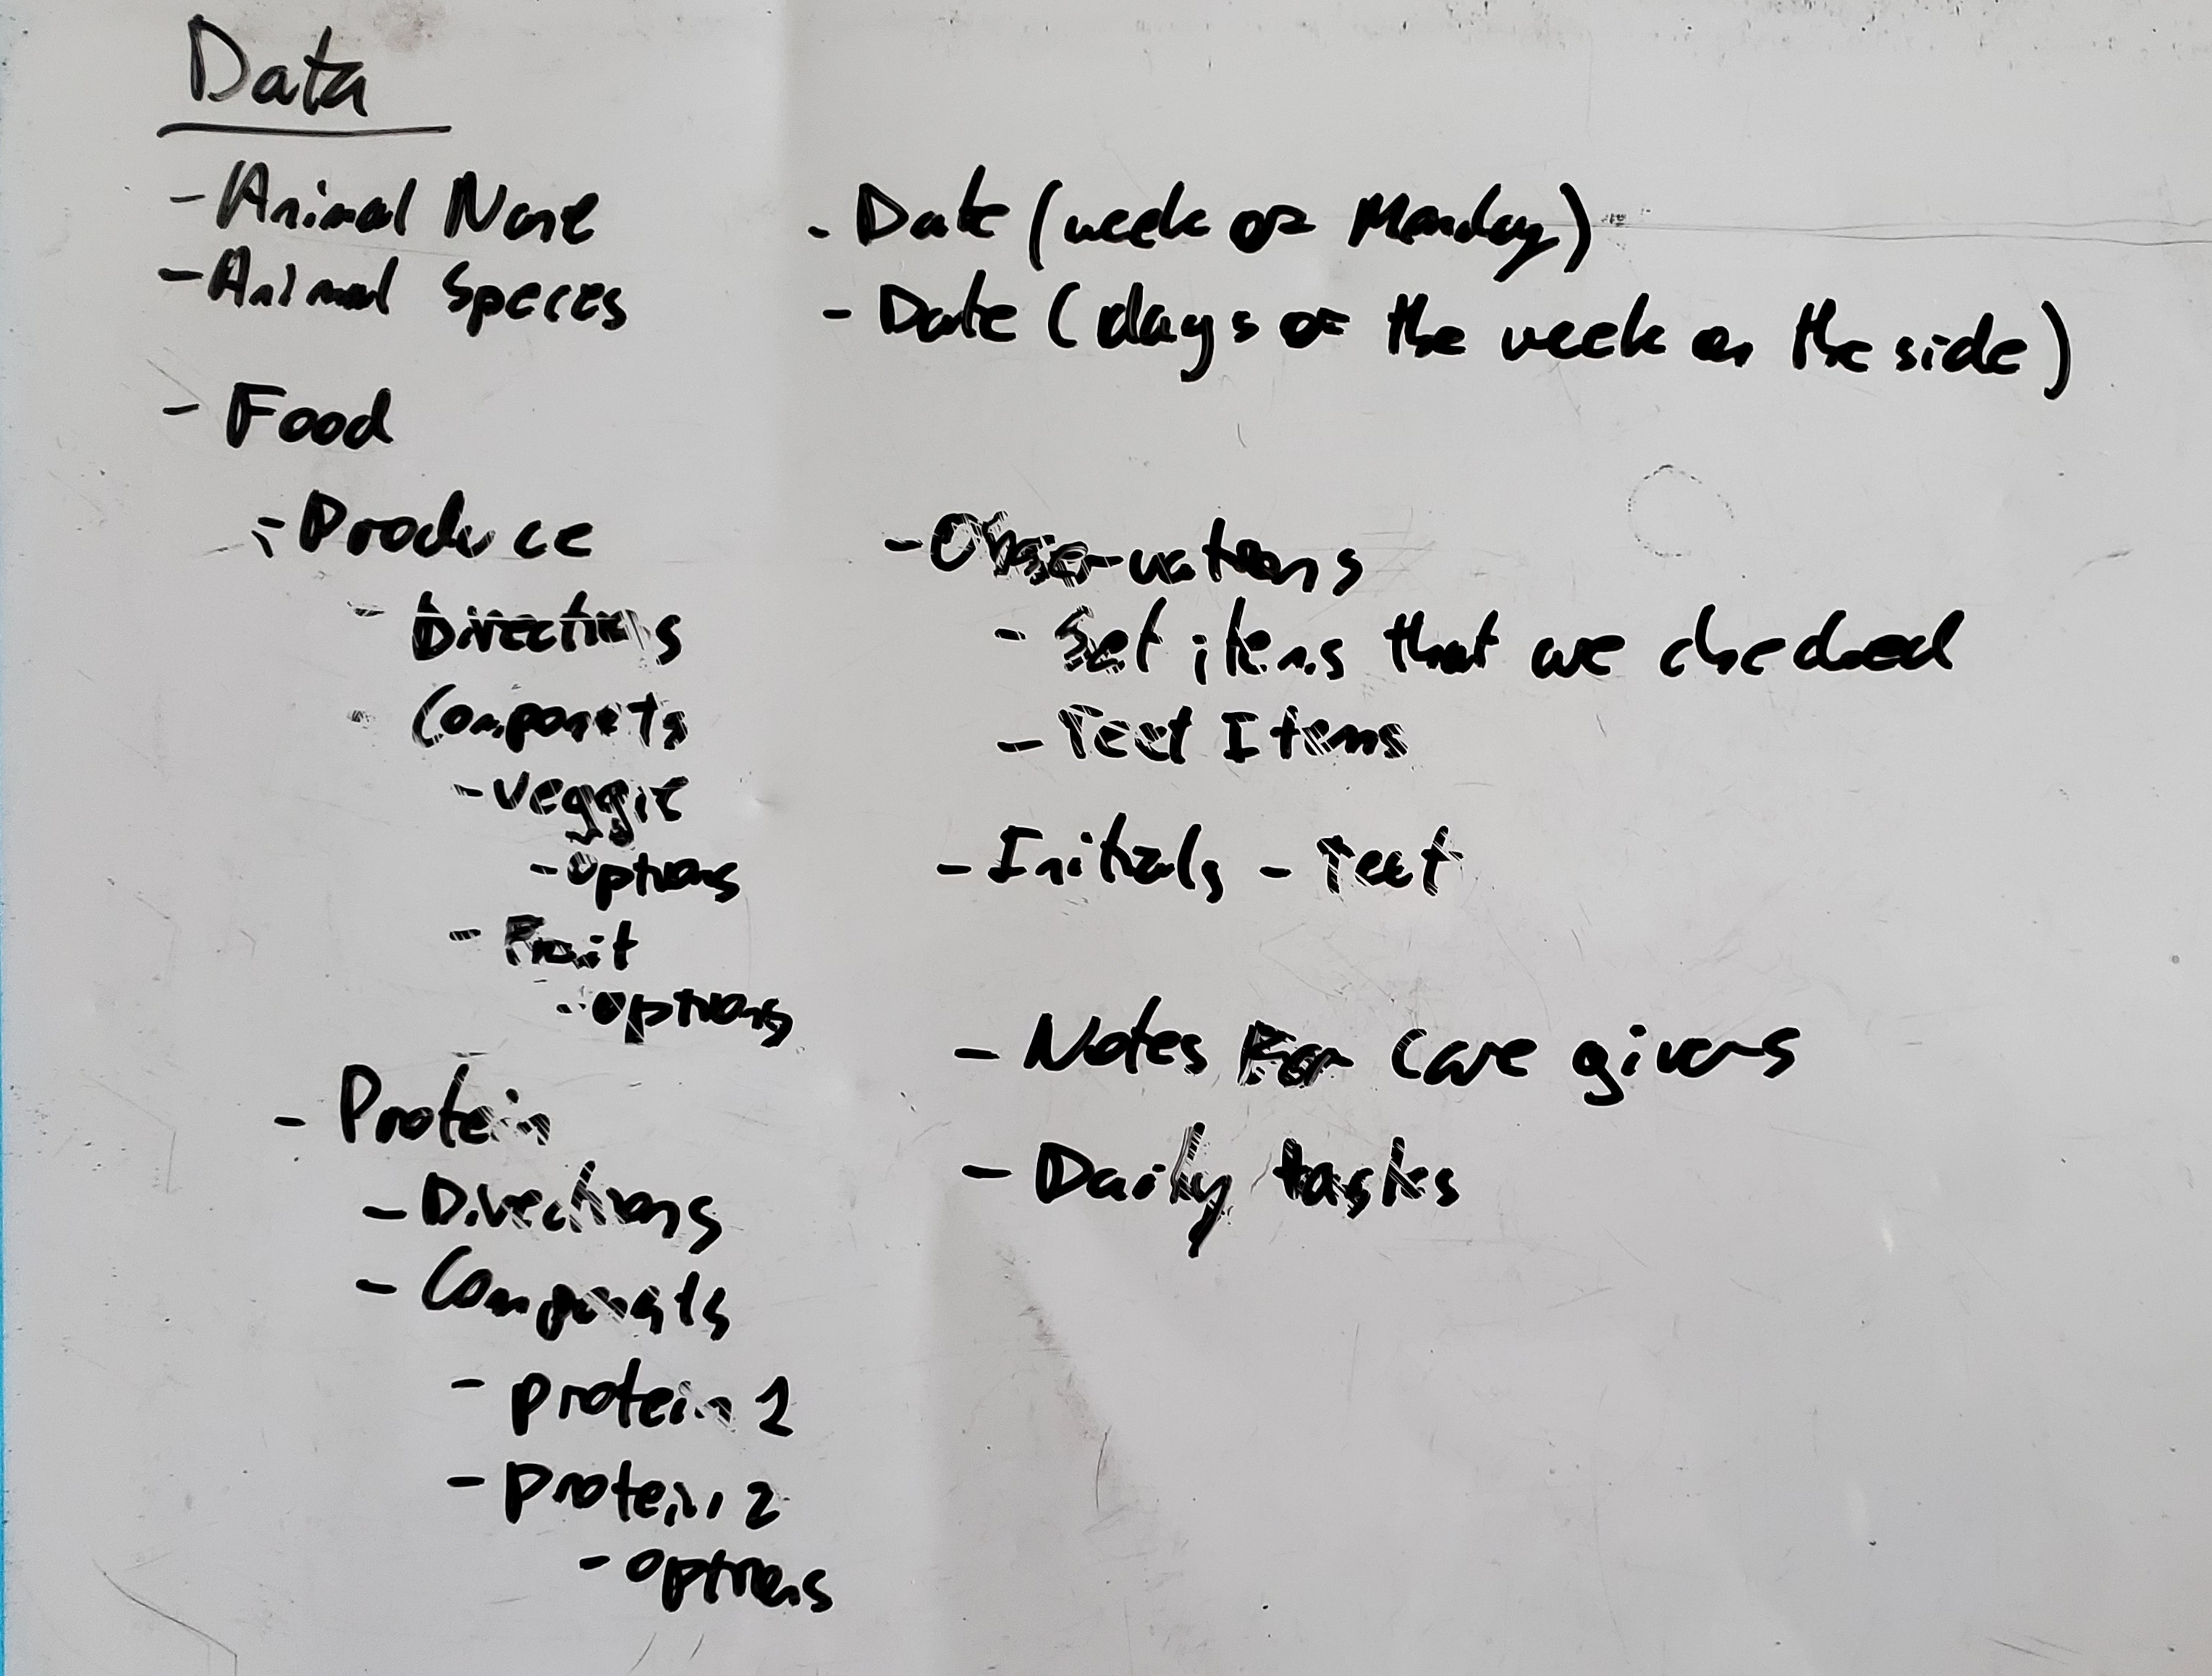 Data
- Animal Name
- Animal Species
- Food
- Produce
- Directions
- Components
- veggie
- options
- Fruit
- options
- Protein
- Directions
- Components
- protein 1
- protein 2
- options
- Date (week of Monday)
- Date (days of the week on the side)
- Observations
- Set items that are checked
- Text Items
- Initials - Text
- Notes For care givers
- Daily tasks